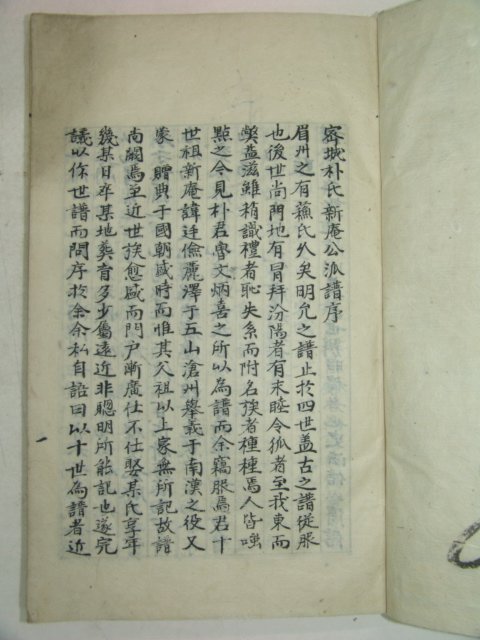 密城朴氏新庵公派譜序
眉州之有蘓氏久矣明允之譜止於四世盖古之譜從服
也後世尚門地有冐拜汾陽者有末睦令狐者至我東而
獘益滋雖稍識禮者恥失系而附名族者種種焉人皆嗤
點之今見朴君魯文炳喜之所以為譜而余竊服焉君十
世祖新庵諱廷儉麗澤于五山滄州擧義于南漢之役又
蒙贈典于國朝盛時而惟其父祖以上家無所記故譜
尚闕焉至近世族愈盛而門户漸廣仕不仕娶某氏享年
幾某日卒某地葬育多少屬遠近非聰明所能記也遂完
議以作世譜而問序於余余私自語曰以十世為譜者近